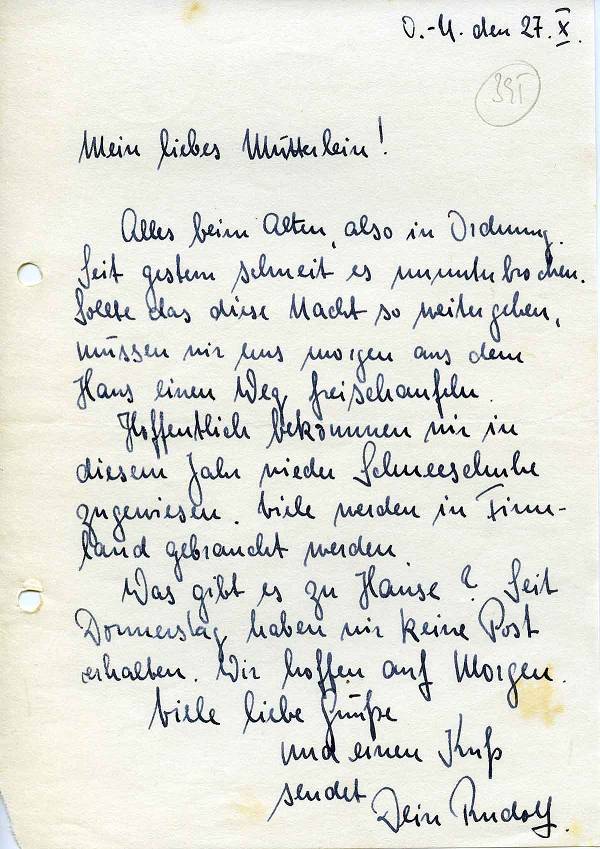 O.-U. den 27. X.
391
Mein liebes Mütterlein!
Alles beim Alten, also in Ordnung.
Seit gestern schneit es ununterbrochen.
Sollte das diese Nacht so weitergehen,
müssen wir uns morgen aus dem
Haus einen Weg freischaufeln.
Hoffentlich bekommen wir in
diesem Jahr wieder Schneeschuhe
zugewiesen. Viele werden in Finn-
land gebraucht werden
Was gibt es zu Hause? Seit
Donnerstag haben wir keine Post
erhalten. Wir hoffen auf Morgen.
Viele liebe Grüße
und einen Kuß
sendet Dein Rudolf.